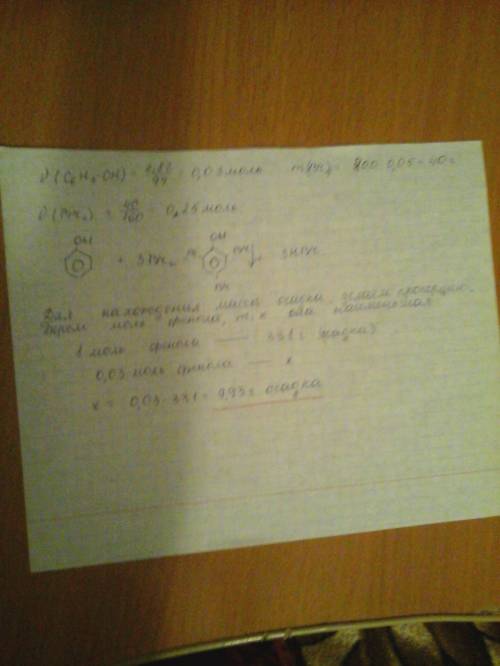 ν(C₆H₅OH) = 2,82/94 = 0,03 моль m(Br₂) = 800·0,05 = 40г
ν(Br₂) = 40/160 = 0,25 моль
OH OH
+ 3Br₂ Br Br ↓ + 3HBr
Br
Для нахождения массы осадка делаем пропорцию.
Берем моль фенола, т.к она наименьшая
1 моль фенола — 331г осадка
0,03 моль фенола — x
x = 0,03·331 = 9,93г осадка